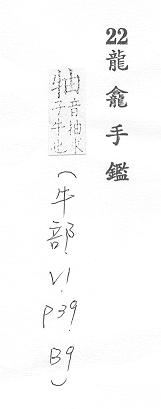 22 龍龕手鑑
牰音柚
子牛也
(牛部. V1. P39. B9)